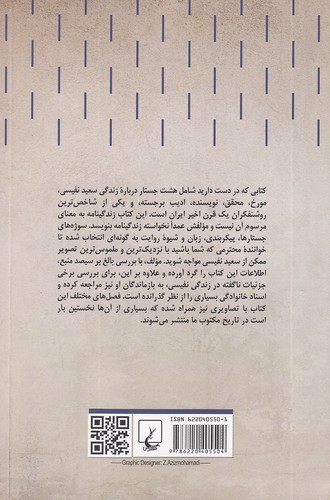 کتابی که در دست دارید شامل هشت جستار دربارهٔ زندگی سعید نفیسی،
مورخ، محقق، نویسنده، ادیب برجسته، و یکی از شاخص‌ترین
روشنفکران یک قرن اخیر ایران است. این کتاب زندگینامه به معنای
مرسوم آن نیست و مؤلفش عمداً نخواسته زندگینامه بنویسد. سوژه‌های
جستارها، پیکربندی، زبان و شیوهٔ روایت به گونه‌ای انتخاب شده تا
خوانندهٔ محترمی که شما باشید با نزدیک‌ترین و ملموس‌ترین تصویر
ممکن از سعید نفیسی مواجه شوید. مؤلف، با بررسی بالغ بر سیصد منبع،
اطلاعات این کتاب را گرد آورده و علاوه بر این، برای بررسی برخی
جزئیات ناگفته در زندگی نفیسی، به بازماندگان او نیز مراجعه کرده و
اسناد خانوادگی بسیاری را از نظر گذرانده است. فصل‌های مختلف این
کتاب با تصاویری نیز همراه شده که بسیاری از آن‌ها نخستین بار
است در تاریخ مکتوب ما منتشر می‌شوند.
ISBN 622040550-1
9 786220 405504
Graphic Designer: Z.Azizmohamadi